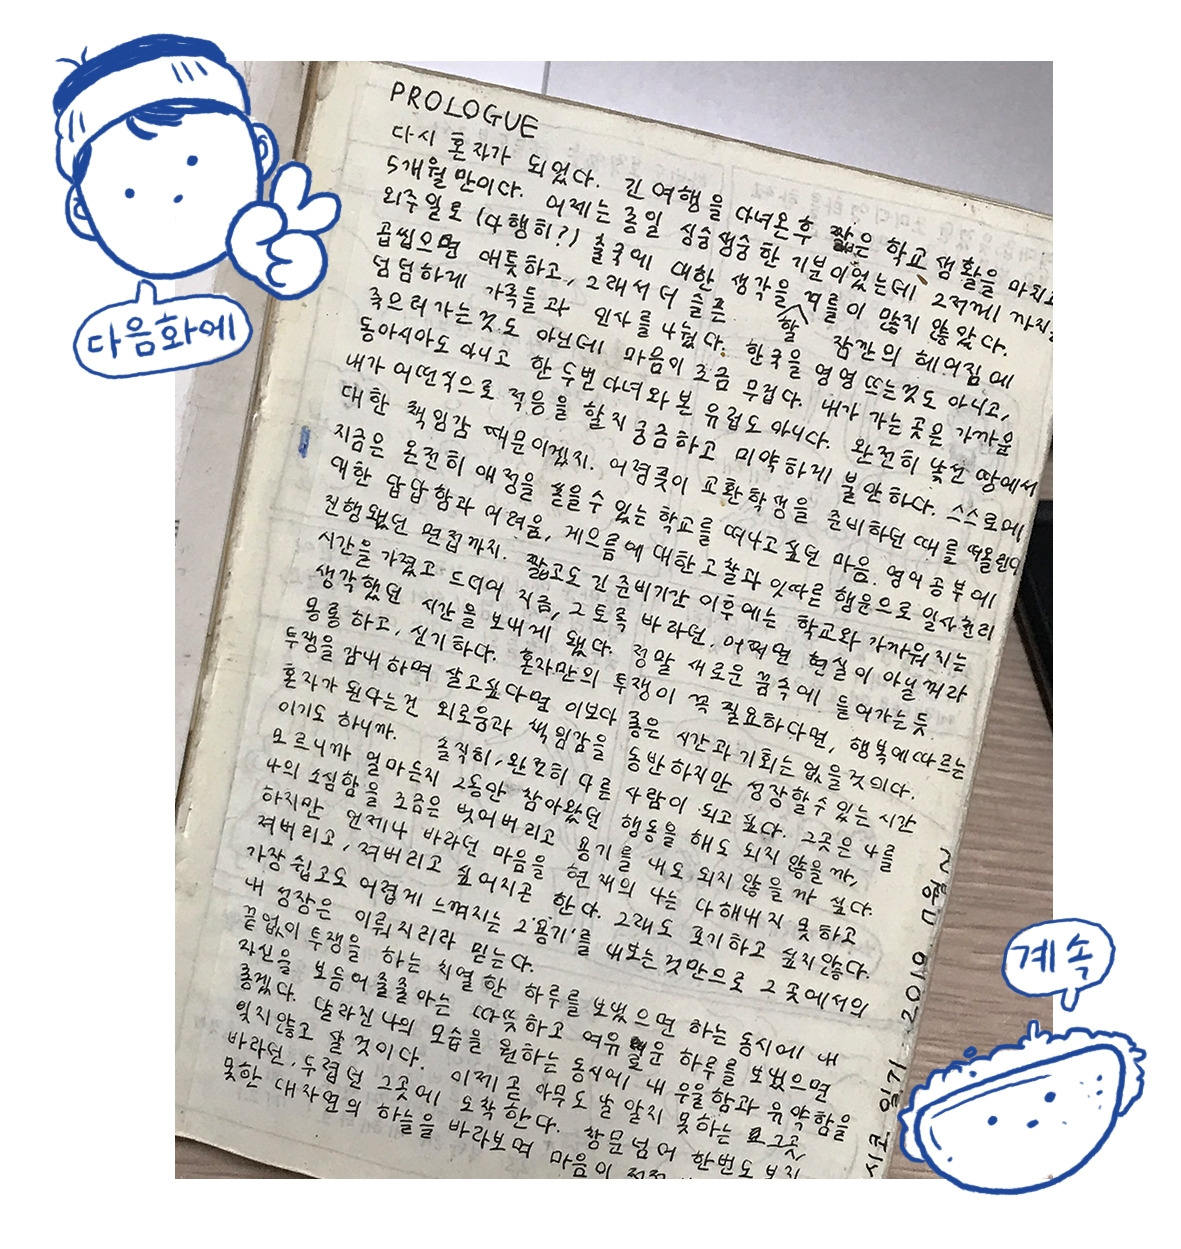 PROLOGUE
다시 혼자가 되었다. 긴 여행을 다녀온후 짧은 학교 생활을 마치고
5개월만이다. 어제는 종일 싱숭생숭한 기분이었는데 그저께 까지는
외주일로 (다행히?) 출국에 대한 생각을 할 겨를이 많지 않았다.
곱씹으면 애틋하고, 그래서 더 슬픈 잠깐의 헤어짐에
덤덤하게 가족들과 인사를 나눴다. 한국을 영영 뜨는것도 아니고,
죽으러가는것도 아닌데 마음이 조금 무겁다. 내가 가는 곳은 가까운
동아시아도 아니고 한두번 다녀와본 유럽도 아니다. 완전히 낯선 땅에서
내가 어떤식으로 적응을 할지 궁금하고 미약하게 불안하다. 스스로에
대한 책임감 때문이겠지. 어렴풋이 교환학생을 준비하던 때를 떠올린다
지금은 온전히 애정을 쏟을수 있는 학교를 떠나고싶던 마음. 영어공부에
대한 답답함과 어려움, 게으름에 대한 고찰과 잇따른 행운으로 일사천리
진행됐던 면접까지. 짧고도 긴 준비기간 이후에는 학교와 가까워지는
시간을 가졌고 드디어 지금, 그토록 바라던, 어쩌면 현실이 아닐꺼라
생각했던 시간을 보내게 됐다. 정말 새로운 꿈속에 들어가는듯
몽롱하고, 신기하다. 혼자만의 투쟁이 꼭 필요하다면, 행복에 따르는
투쟁을 감내하며 살고싶다면 이보다 좋은 시간과 기회는 없을것이다.
혼자가 된다는건 외로움과 책임감을 동반하지만 성장할수있는 시간
이기도 하니까. 솔직히, 완전히 다른 사람이 되고 싶다. 그곳은 나를
모르니까 얼마든지 그동안 참아왔던 행동을 해도 되지 않을까,
나의 소심함을 조금은 벗어버리고 용기를 내도 되지 않을까 싶다.
하지만 언제나 바라던 마음을 현재의 나는 다 해내지 못하고
져버리고, 져버리고 싶어지곤 한다. 그래도 포기하고 싶지않다.
가장 쉽고도 어렵게 느껴지는 그'용기'를 내보는것만으로 그곳에서의
내 성장은 이뤄지리라 믿는다.
끝없이 투쟁을 하는 치열한 하루를 보냈으면 하는 동시에 내
자신을 보듬어줄줄아는 따뜻하고 여유로운 하루를 보냈으면
좋겠다. 달라진 나의 모습을 원하는 동시에 내 우울함과 유약함을
잊지않고 살 것이다. 이제 곧 아무도 날 알지 못하는 그곳,
바라던, 두렵던 그곳에 도착한다. 창문넘어 한번도 보지
못한 대자연의 하늘을 바라보며 마음이 점점
다음화에
계속